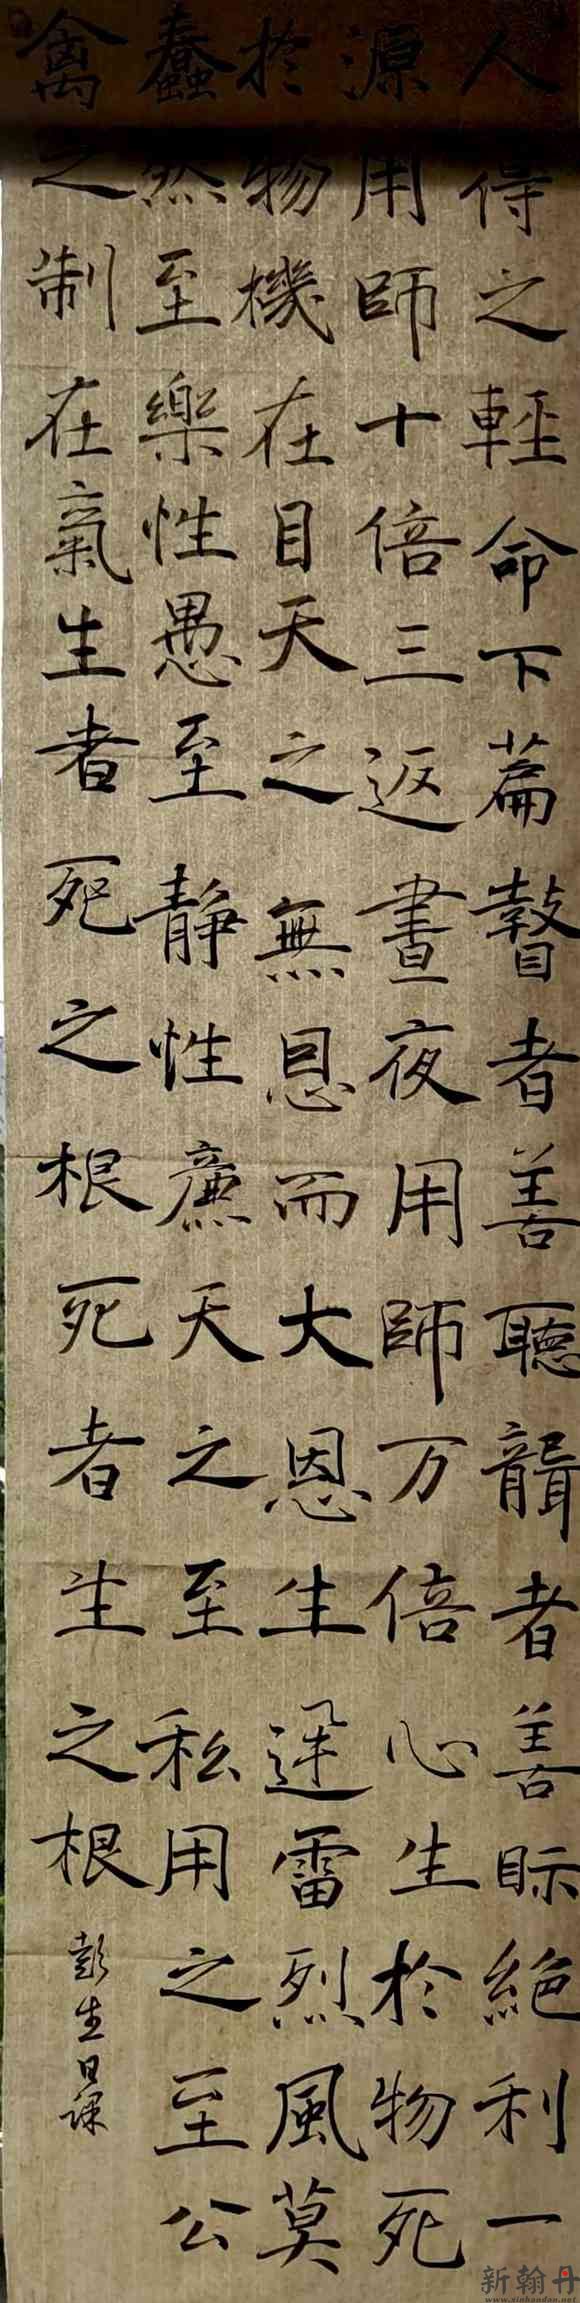 人得之輕命下篇瞽者善聽聾者善眎絕利一
源用師十倍三返晝夜用師万倍心生扵物死
扵物機在目天之無恩而大恩生迅雷烈風莫
蠢然至樂性愚至靜性廉天之至私用之至公
禽之制在氣生者死之根死者生之根
彭生日课
新翰丹
www.xinhandan.net